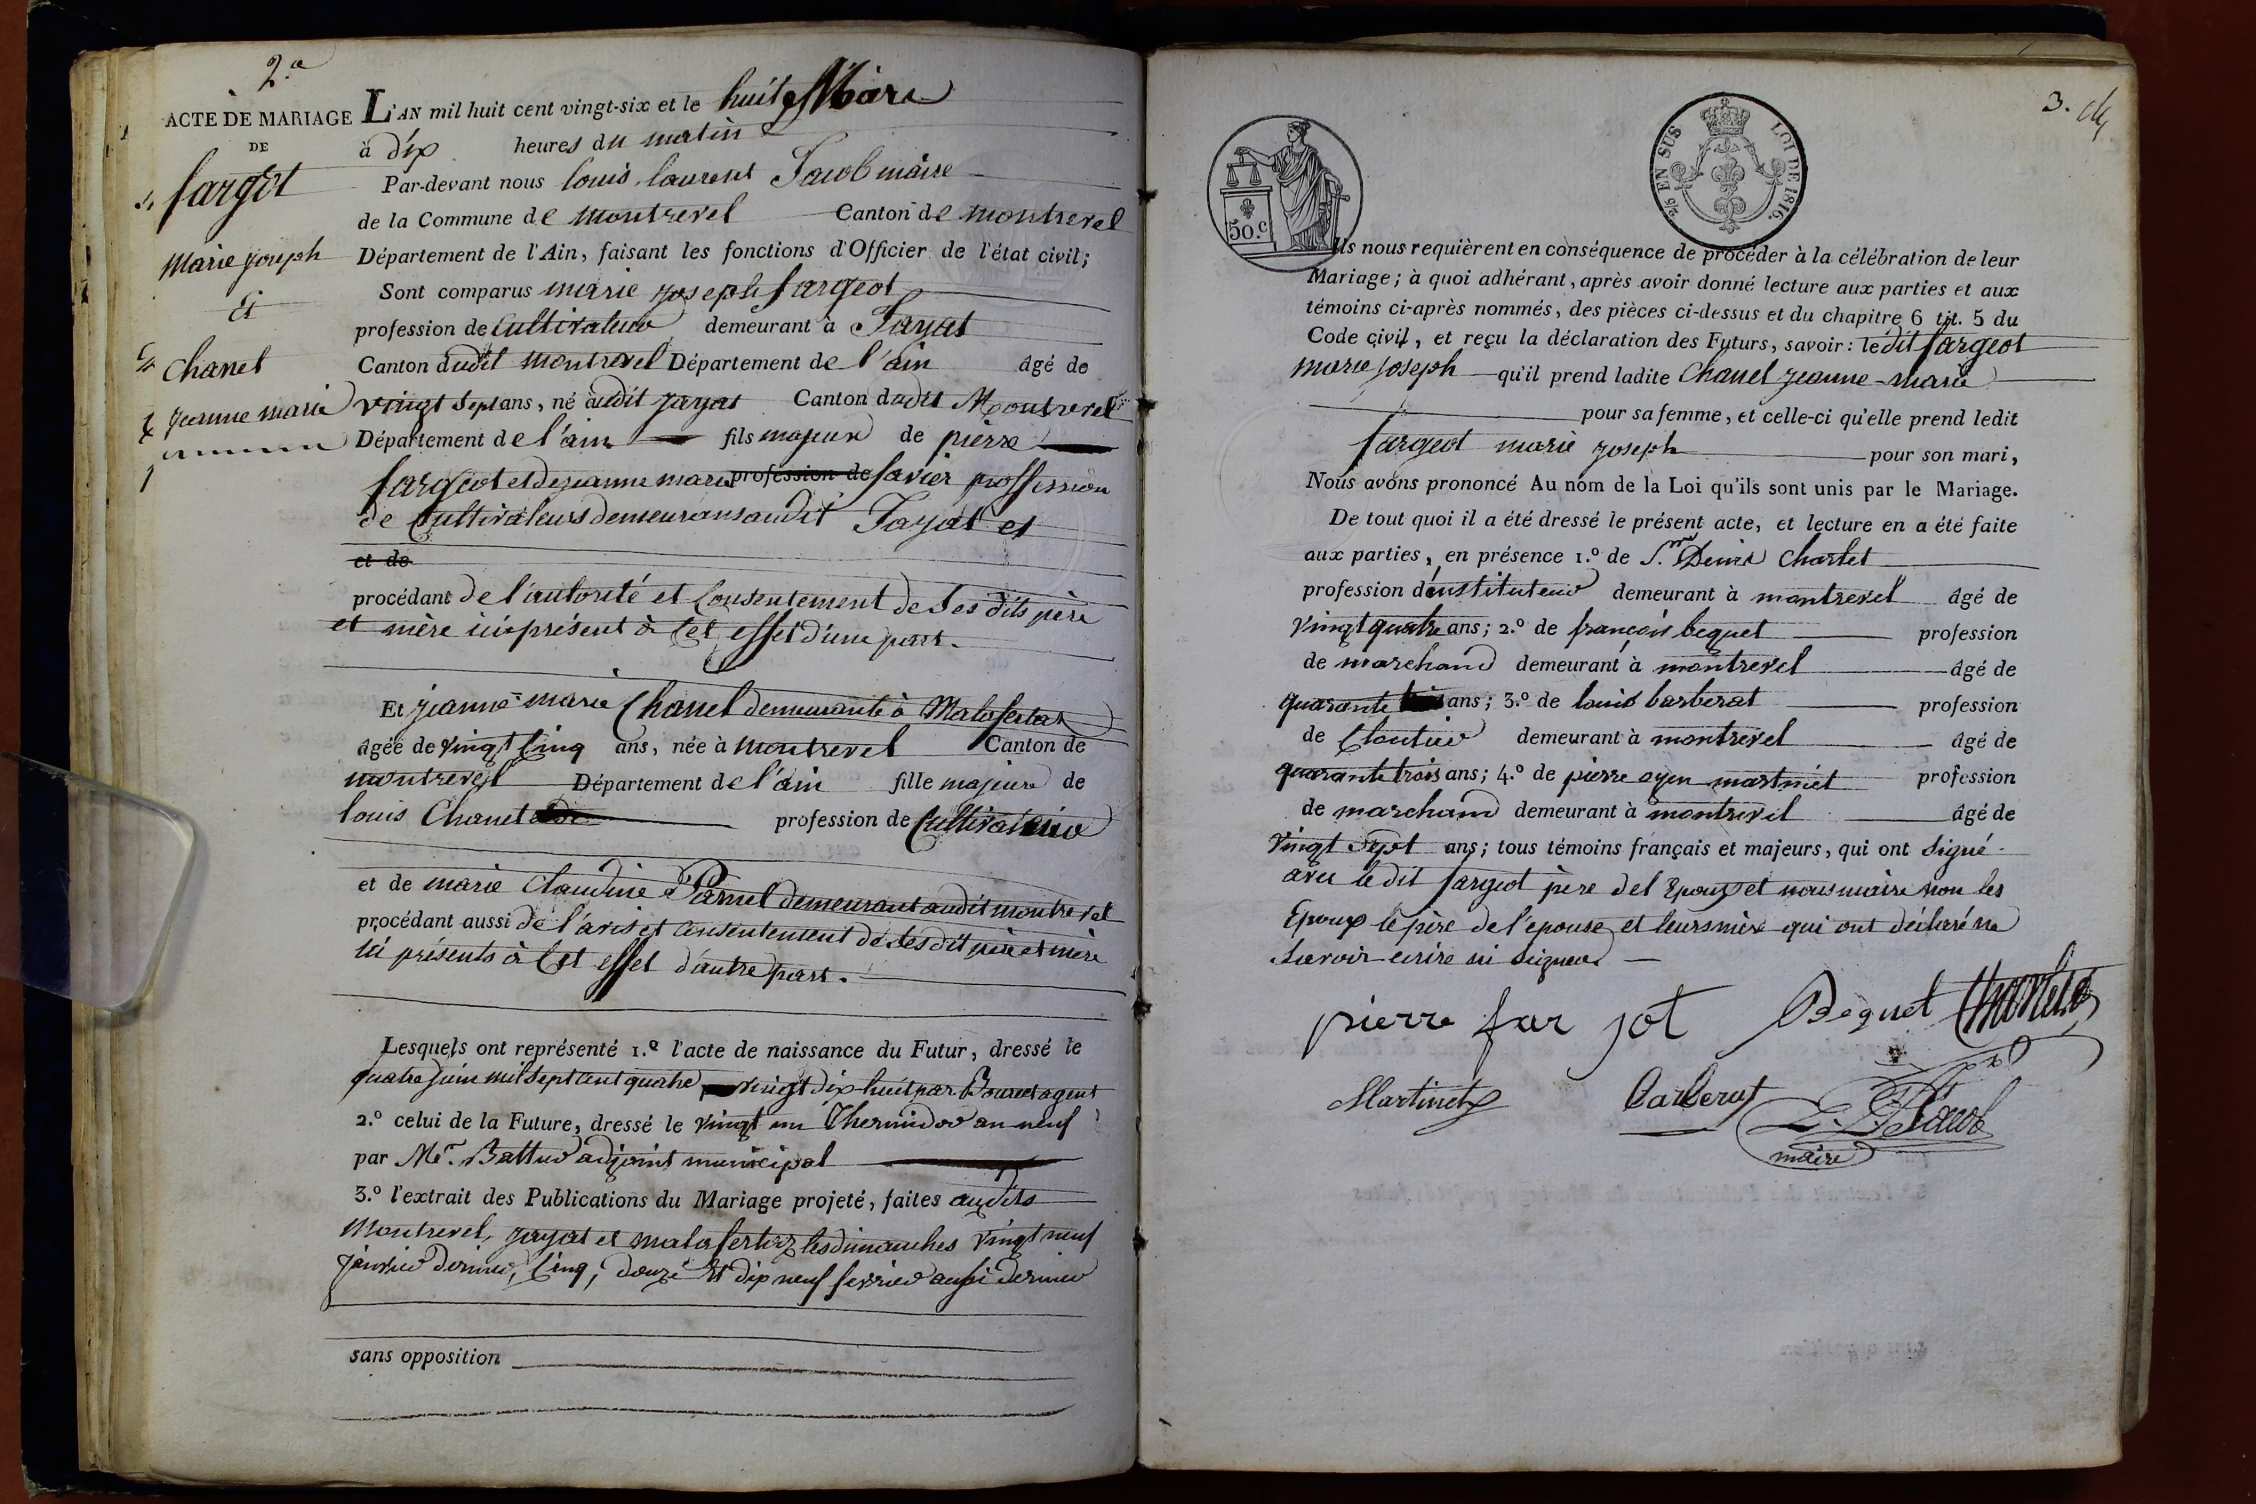 2.e
ACTE DE MARIAGE
DE
fargot
Marie joseph
Et
Chanel
jeanne marie
L'AN mil huit cent vingt-six et le huit Mars
à dix heures du matin
Par-devant nous louis laurent Jacob maire
de la Commune de montrevel Canton de montrevel
Département de l'Ain, faisant les fonctions d'Officier de l'état civil;
Sont comparus marie joseph fargeot
profession de Cultivateur demeurant à Jayat
Canton dudit montrevel Département de l'ain âgé de
vingt sept ans, né audit jayat Canton dudit Montrevel
Département de l'ain fils majeur de pierre
fargeot et de jeanne marie profession de favier proffession
de Cultivateurs demeurans audit Jayat et
et de
procédant de l'autorité et Consentement de ses dits père
et mère ici présent à Cet effet d'une part.
Et jeanne-marie Chanel demeurante à Malafretaz
âgée de vingt Cinq ans, née à montrevel Canton de
montrevel Département de l'ain fille majeure de
louis Chanel profession de Cultivateur
et de marie Claudine demeurant audit montrevel
procédant aussi de l'avis et Consentement de ses dit père et mère
ici présents à Cet effet d'autre part.
Lesquels ont représenté 1.º l'acte de naissance du Futur, dressé le
quatre juin mil sept cent quatre vingt dix huit par Bouret agent
2.º celui de la Future, dressé le vingt un Thermidor an neuf
par Mr. Battur adjoint municipal
3.º l'extrait des Publications du Mariage projeté, faites audits
Montrevel, jayat et malafertaz les dimanches vingt neuf
janvier dernier, Cinq, douze et dix neuf fevrier aussi dernier
sans opposition
3.
50.c
2/5 EN SUS
LOI DE 1816.
Ils nous requièrent en conséquence de procéder à la célébration de leur
Mariage; à quoi adhérant, après avoir donné lecture aux parties et aux
témoins ci-après nommés, des pièces ci-dessus et du chapitre 6 tit. 5 du
Code civil, et reçu la déclaration des Futurs, savoir: ledit fargeot
marie joseph qu'il prend ladite Chanel jeanne-marie
pour sa femme, et celle-ci qu'elle prend ledit
fargeot marie joseph pour son mari,
Nous avons prononcé Au nom de la Loi qu'ils sont unis par le Mariage.
De tout quoi il a été dressé le présent acte, et lecture en a été faite
aux parties, en présence 1.º de Denis Charlet
profession d'instituteur demeurant à montrevel âgé de
vingt quatre ans; 2.º de françois bequet profession
de marchand demeurant à montrevel âgé de
quarante ans; 3.º de louis barberat profession
de Cloutier demeurant à montrevel âgé de
quarante trois ans; 4.º de pierre martinet profession
de marchand demeurant à montrevel âgé de
vingt Sept ans; tous témoins français et majeurs, qui ont signé
avec le dit fargeot père del Epoux et nous maire non les
Epoux le père de l'epouse et leurs mère qui ont déclaré ne
Savoir ecrire ni signer
pierre far jot Bequet Charlet
Martinet Barberat L. L. Jacob
maire